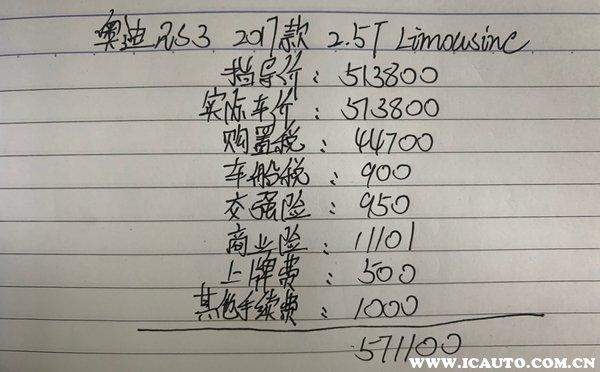 奥迪RS3 2017款 2.5T Limousine
指导价：513800
实际车价：513800
购置税：44700
车船税：900
交强险：950
商业险：11101
上牌费：500
其他手续费：1000
571100
WWW.ICAUTO.COM.CN